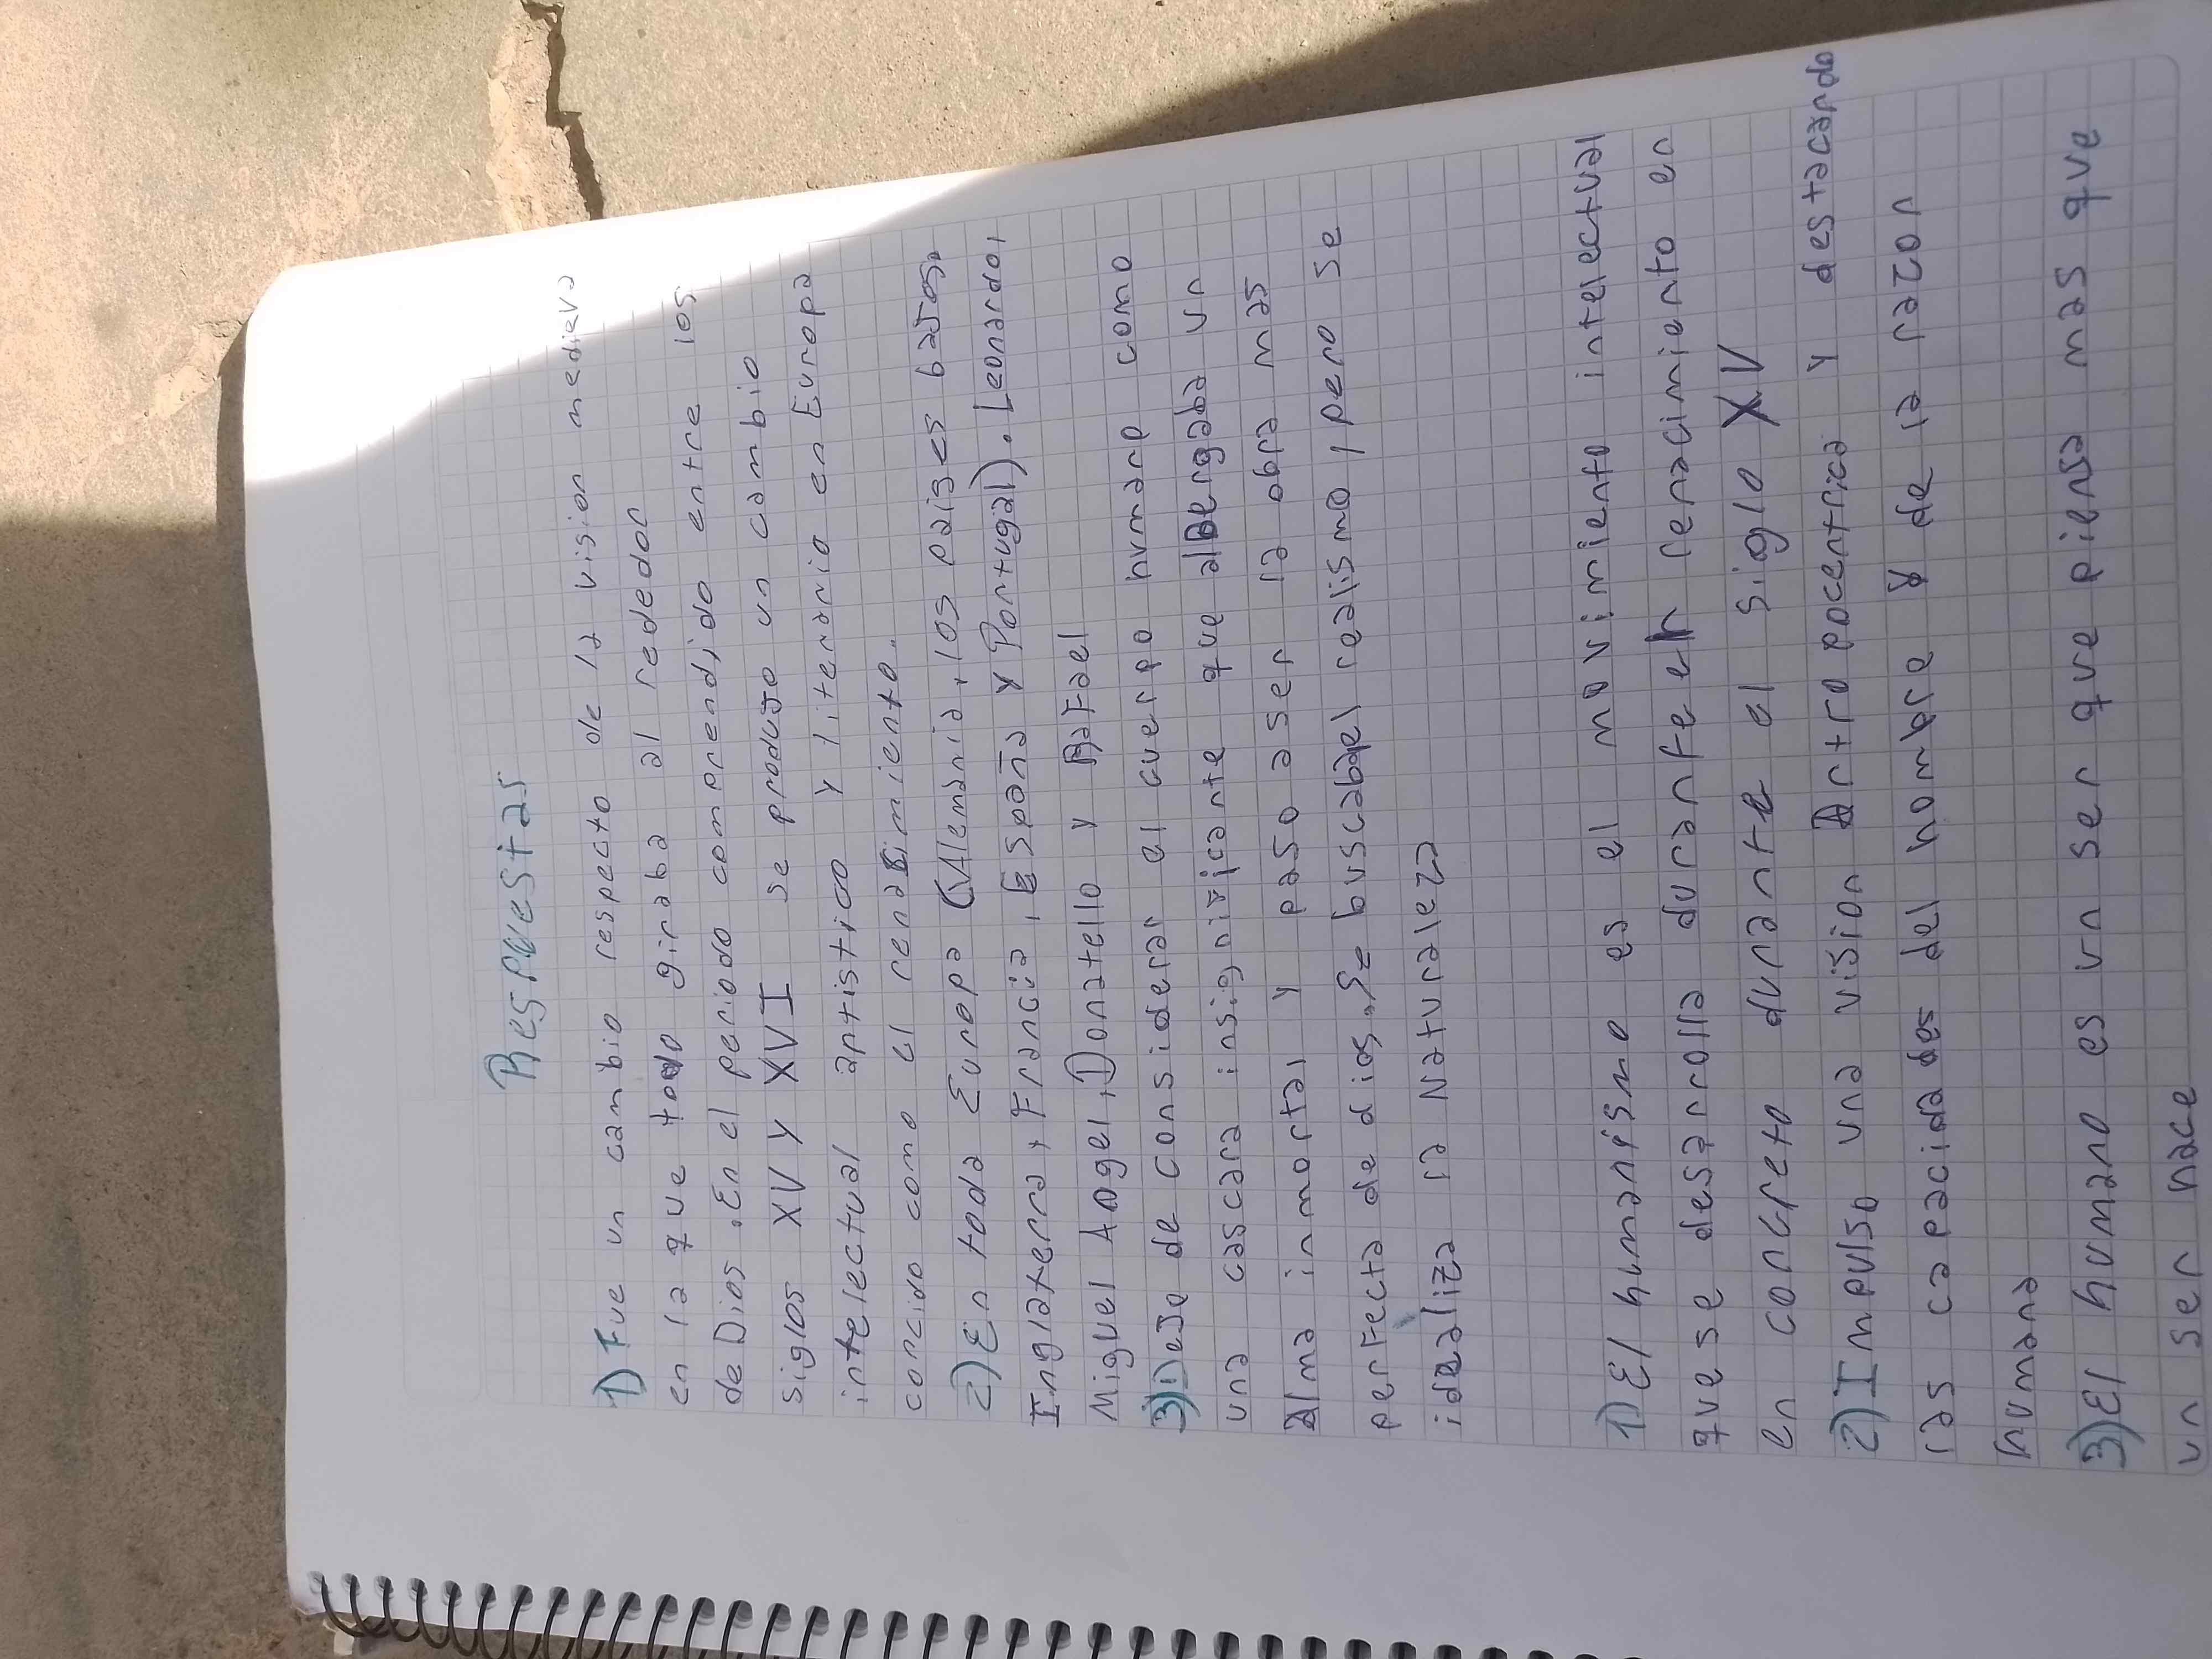 Respuestas
1) Fue un cambio respecto de la vision medieva
en la que todo giraba al rededor
de Dios. En el periodo comprendido entre los
siglos XV y XVI se produjo un cambio
intelectual artistico y literario en Europa
conocido como el renacimiento.
2) En toda Europa (Alemania, los paises bajos,
Inglaterra, Francia, España y Portugal). Leonardo,
Miguel Angel, Donatello y Rafael
3) Dejo de considerar el cuerpo humano como
una cascara insignificante que albergaba un
Alma inmortal y paso aser la obra mas
perfecta de dios. Se buscaba el realismo, pero se
idealiza la Naturaleza
1) El humanismo es el movimiento intelectual
que se desarrolla durante el renacimiento en
en concreto durante el siglo XV
2) Impulso una vision Antropocentrica y destacando
las capacidades del hombre y de la razon
humana
3) El humano es un ser que piensa mas que
un ser nace